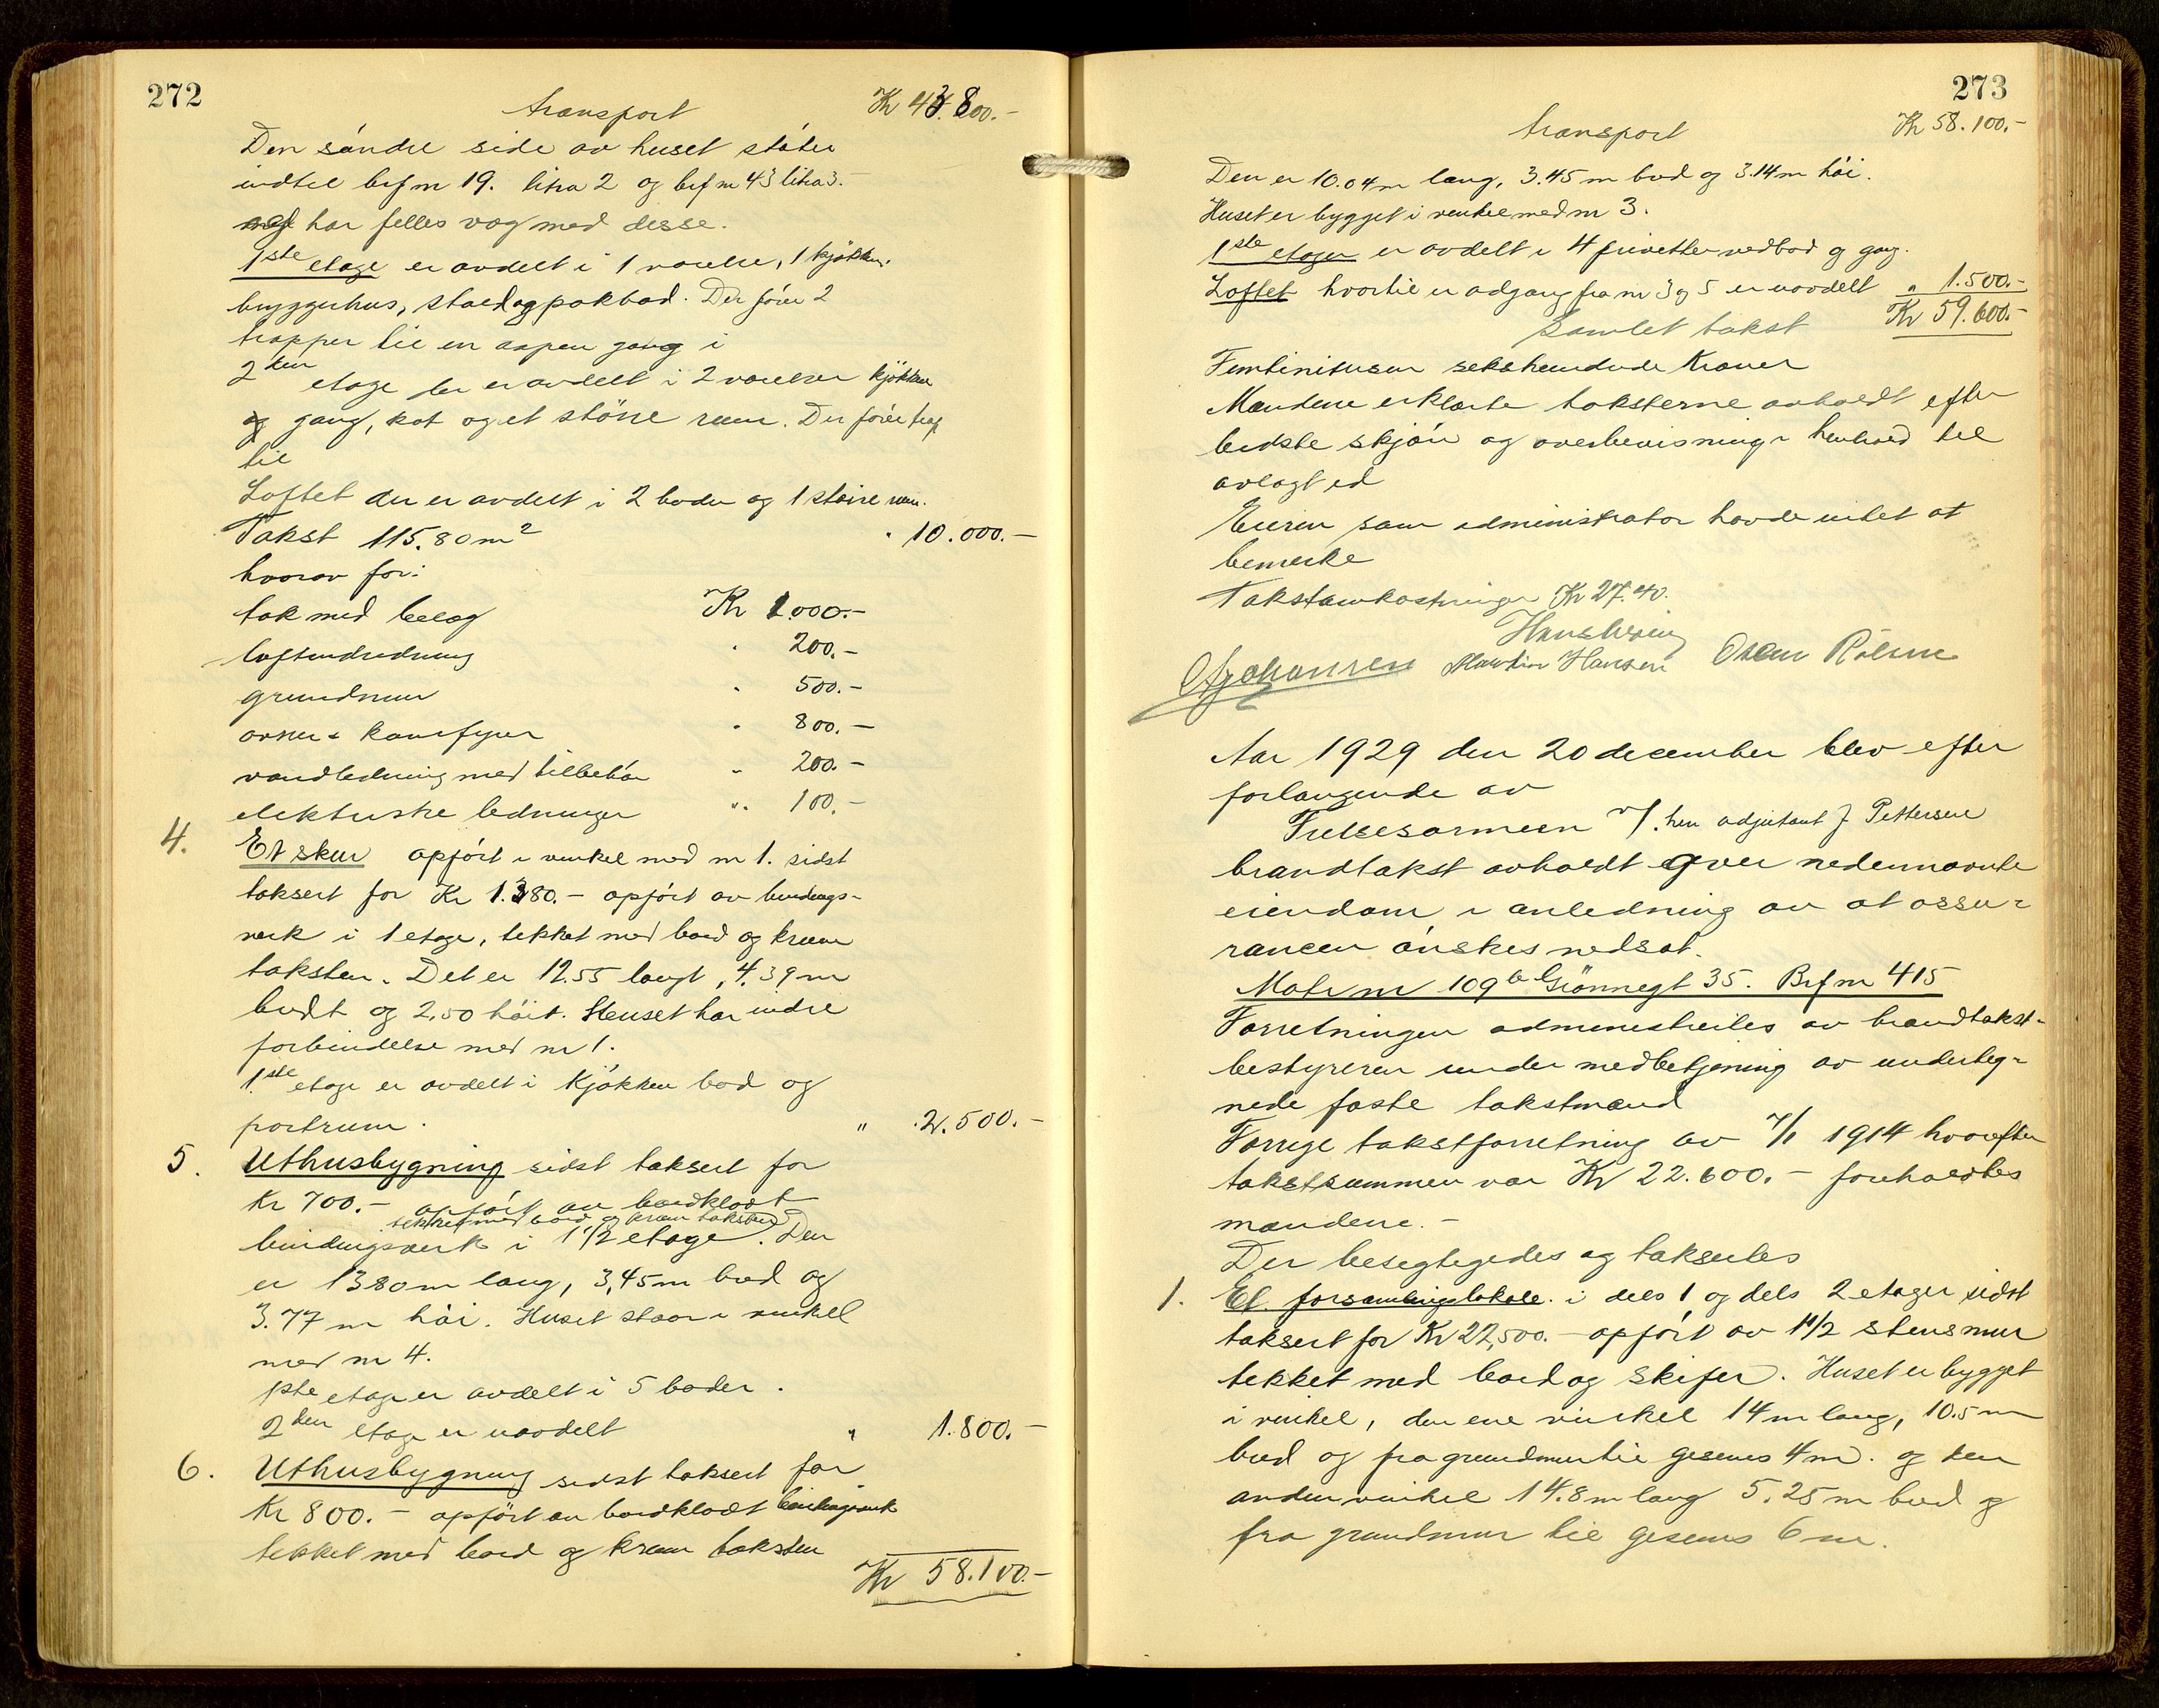 272
transport Kr 43.800.-
Den söndre side av huset støter
indtil brf nr 19. litra 2 og brf nr 43 litra 3.-
har felles væg med desse.
1ste etage er avdelt i 1 værelse, 1 kjøkken
bryggerhus, stald og pakbod. Der fører 2
trapper til en aapen gang i
2den etage der er avdelt i 2 værelser kjøkken
og gang, kot og et större rum. Der förer trap
til
Loftet der er avdelt i 2 boder og 1 större rum.
Takst 115.80 m2 " 10.000.-
hvorav for:
tak med belæg Kr 1.000.-
loftindredning " 200.-
grundmur " 500.-
ovner & komfyrer " 800.-
vandledning med tilbehör " 200.-
elektriske ledninger " 100.-
4. Et skur opfört i vinkel med nr 1. sidst
taksert for Kr 1.380.- opfört av bindings-
verk i 1 etage, tekket med bord og krum
taksten. Det er 12.55 langt, 4.39 m
bredt og 2.50 høit. Huset har indre
forbindelse med nr 1.
1ste etage er avdelt i kjøkken bod og
portrum. " 2.500.-
5. Uthusbygning sidst taksert for
Kr 700.- opfört av bordklædt
tekket med bord og krum taksten
bindingsverk i 1 1/2 etage. Den
er 13.80 m lang, 3,45 m bred og
3.77 m höi. Huset staar i vinkel
med nr 4.
1ste etage er avdelt i 5 boder.
2den etage er uavdelt " 1.800.-
6. Uthusbygning sidst taksert for
Kr 800.- opfört av bordklædt bindingsverk
tekket med bord og krum taksten
Kr 58.100.-
273
transport Kr 58.100.-
Den er 10.04 m lang, 3.45 m bred og 3.14 m höi.
Huset er bygget i vinkel med nr 3.
1ste etage er avdelt i 4 privetter vedbod og gang.
Loftet hvortil er adgang fra nr 3 og 5 er uavdelt " 1.500.-
Samlet takst Kr 59.600.-
Femtinitusen sekshundrede Kroner
Mændene erklærte taksterne avholdt efter
bedste skjön og overbevisning i henhold til
avlagt ed
Eieren som administrator havde intet at
bemerke
Takstomkostninger Kr 27.40.
Johansen Martin Hansen Oscar
Aar 1929 den 20 december blev efter
forlangende av
Frelsesarmeen v/. herr adjutant J Pettersen
brandtakst avholdt over nedennævnte
eiendom i anledning av at assu-
rancen önskes nedsat.
Matr nr 109 b Grönnegt 35. Brf nr 415
Forretningen administreites av brandtakst-
bestyreren under medbetjening av underteg-
nede faste takstmænd
Forrige takstforretning av 7/1 1914 hvorefter
takstsummen var Kr 22.600.- foreholdtes
mændene.-
Der besegtigedes og taksertes
1. Et forsamlingslokale i dels 1 og dels 2 etager sidst
taksert for Kr 22,500.- opfört av 1 1/2 stens mur
tekket med bord og skifer. Huset er bygget
i vinkel, den ene vinkel 14 m lang, 10.5 m
bred og fra grundmur til gesems 4 m. og den
anden vinkel 14.8 m lang 5.25 m bred og
fra grundmur til gesems 6 m.